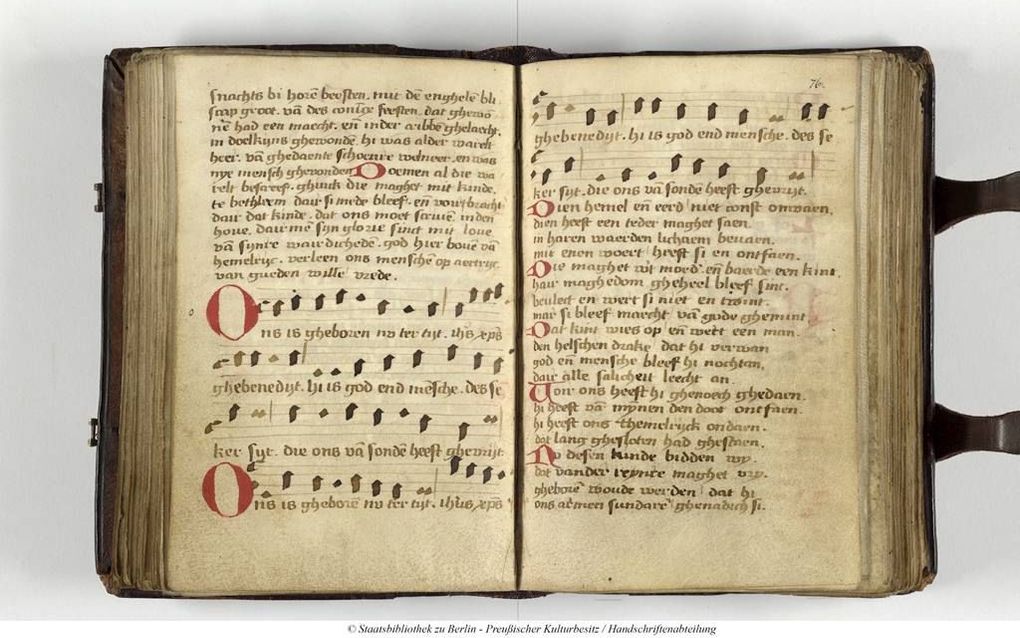 snachts bi horē beesten. mit dē enghelē bli
scap groot. vā des conīcs feesten. dat ghewō
nē had een maecht. eñ inder cribbē ghelaecht.
in doelkyns ghewondē. hi was alder warelt
heer. vā ghedaente schoenre velmeer. en was
nye mensch ghevonden Doemen al die wa
relt bescreef. ghinck die maghet mit kinde.
te bethleem daer si mede bleef. eñ vort bracht
daer dat kinde. dat ons moet scrivē inden
hove. daer mē syn glorie sinct mit love
vā synre waerdichede. god hier bovē vā
hemelryc. verleen ons menschē op aertryc
van gueden wille vrede.
Ons is gheboren nv ter tyt. ih's xp̄s
ghebenedyt. hi is god end mēsche. des se
ker syt. die ons vā sondē heeft ghevryt
Ons is gheborē nv ter tyt. ihūs xp̄s
76
ghebenedyt. hi is god end mensche. des se
ker syt. die ons vā sondē heeft ghevryt.
Dien hemel en eerd niet const omvaen.
dien heeft een teder maghet saen.
in haren waerden lichaem bevaen.
mit enen woert heeft si en ontfaen.
Die maghet wt moed eñ baerde een kint.
haer maghedom gheheel bleef sint.
bevlect en wert si niet en twint.
mar si bleef maecht vā gode ghemint
Dat kint wies op eñ wert een man.
den helschen drake dat hi verwan
god eñ mensche bleef hi nochtan.
daer alle salicheit leecht an.
Voer ons heeft hi ghenoech ghedaen.
hi heeft vā mynen den doot ontfaen.
hi heeft ons themelryck ondaen.
dat lang ghesloten had ghestaen.
Nv desen kinde bidden wy.
dat vander reynre maghet vry.
gheborē woude werden dat hi
ons armen sundarē ghenadich si.
© Staatsbibliothek zu Berlin - Preußischer Kulturbesitz / Handschriftenabteilung